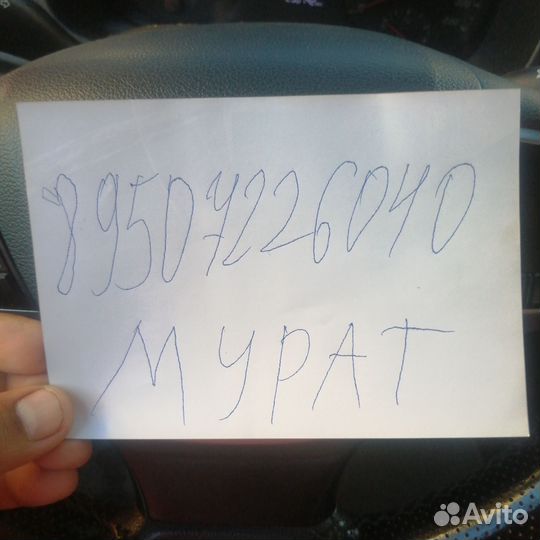 89507226040
МУРАТ
Avito